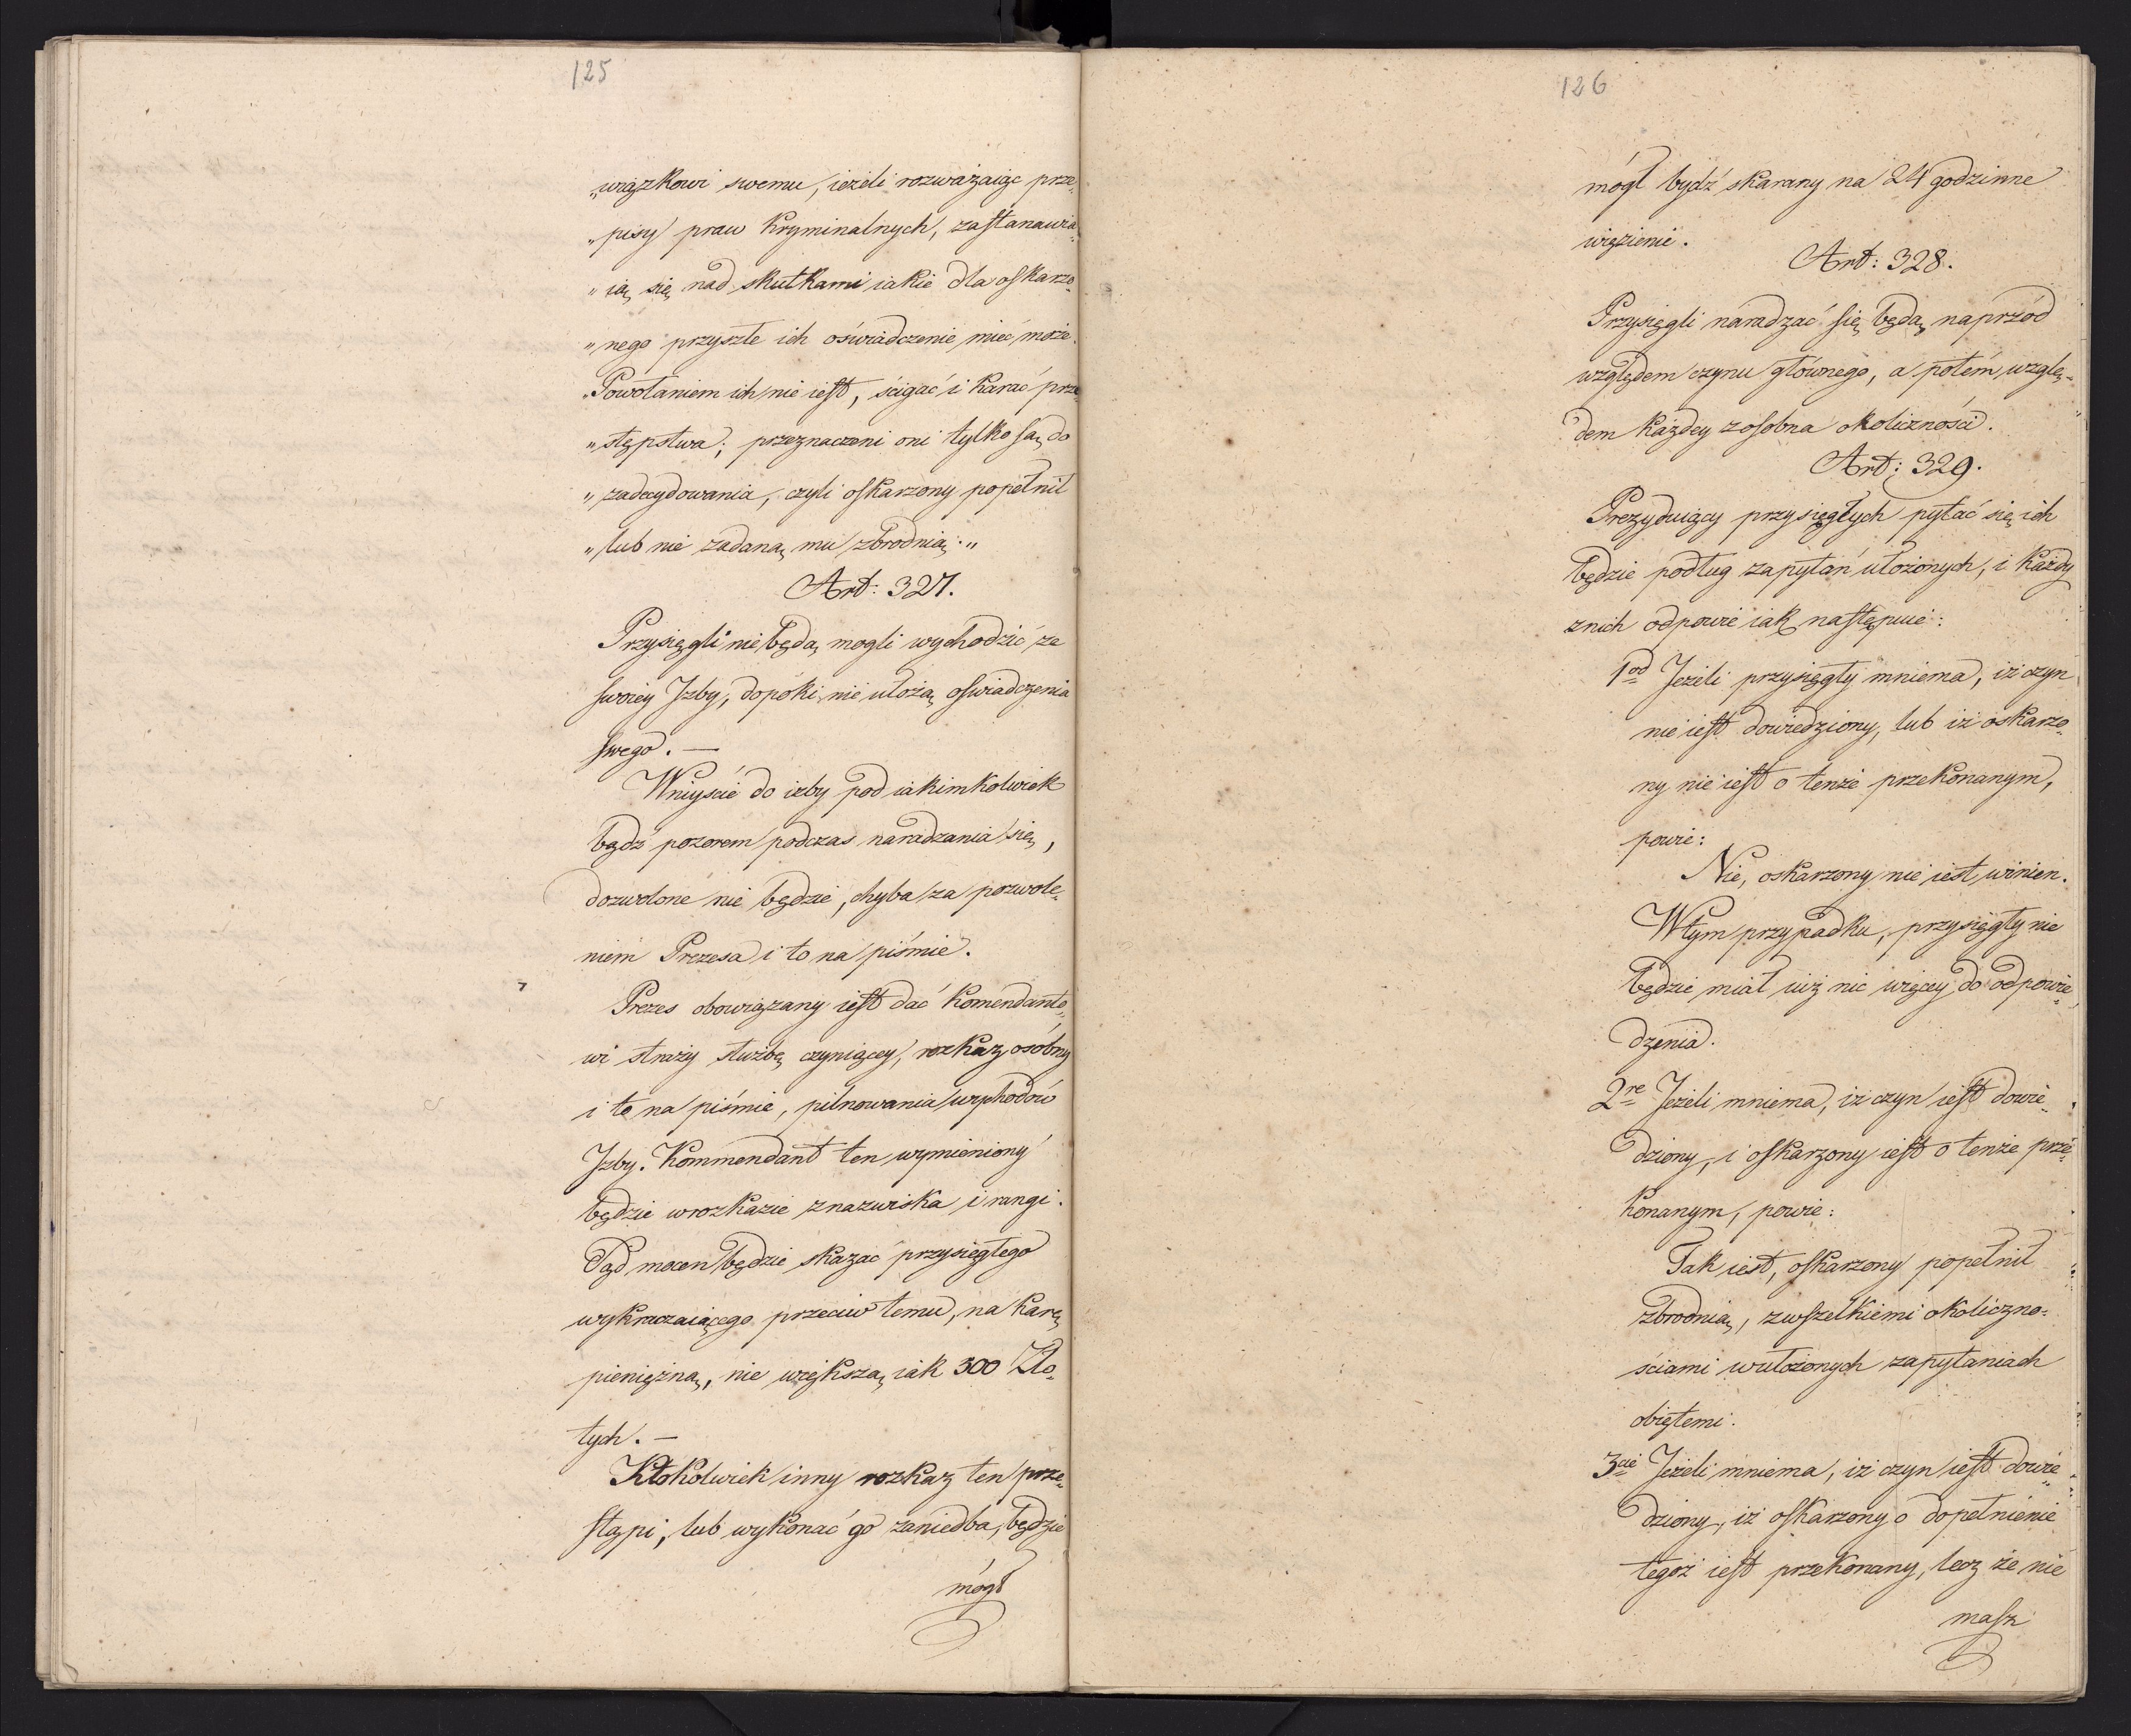 125
„wiązkowi swemu, ieżeli rozważaiąc prze„
„pisy praw kryminalnych, zastanawia„
„ią się nad skutkami iakie dla oskarżo„
„nego przyszłe ich oświadczenie mieć może.
„Powołaniem ich nie iest, ścigać i karać prze„
„stępstwa; przeznaczeni oni tylko są do
„zadecydowania, czyli oskarżony popełnił
„lub nie zadaną mu zbrodnią.„
Art: 327.
Przysięgli nie będą mogli wychodzić ze
swoiey Izby, dopóki nie ułożą oświadczenia
swego. —
Wniyście do izby pod iakimkolwiek
bądź pozorem podczas naradzania się,
dozwolone nie będzie, chyba za pozwole„
niem Prezesa i to na piśmie.
Prezes obowiązany iest dać Komendanto„
wi straży służbę czyniącey, rozkaz osóbny
i to na piśmie, pilnowania wychodów
Izby. Kommendant ten wymieniony
będzie w rozkazie z nazwiska i rangi.
Sąd mocen będzie skazać przysięgłego
wykraczaiącego przeciw temu, na karę
pieniężną, nie większą iak 300 Zło„
tych. —
Ktokolwiek inny rozkaz ten prze„
stąpi, lub wykonać go zaniedba, będzie
mógł
126
mógł bydź skarany na 24 godzinne
więzienie.
Art: 328.
Przysięgli naradzać się będą naprzód
względem czynu głównego, a potém wzglę„
dem każdey z osobna okoliczności.
Art: 329.
Prezyduiący przysięgłych pytać się ich
będzie podług zapytań ułożonych, i każdy
z nich odpowie iak następuie:
1od Jeżeli przysięgły mniema, iż czyn
nie iest dowiedziony, lub iż oskarżo„
ny nie iest o tenże przekonanym,
powie:
Nie, oskarżony nie iest winien.
W tym przypadku, przysięgły nie
będzie miał iuż nic więcey do odpowie„
dzenia.
2re Jeżeli mniema, iż czyn iest dowie„
dziony, i oskarżony iest o tenże prze„
konanym, powie:
Tak iest, oskarżony popełnił
zbrodnią, z wszelkiemi okoliczno„
ściami w ułożonych zapytaniach
obiętemi.
3cie Jeżeli mniema, iż czyn iest dowie„
dziony, iż oskarżony o dopełnienie
tegoż iest przekonany, lecz że nie
masz